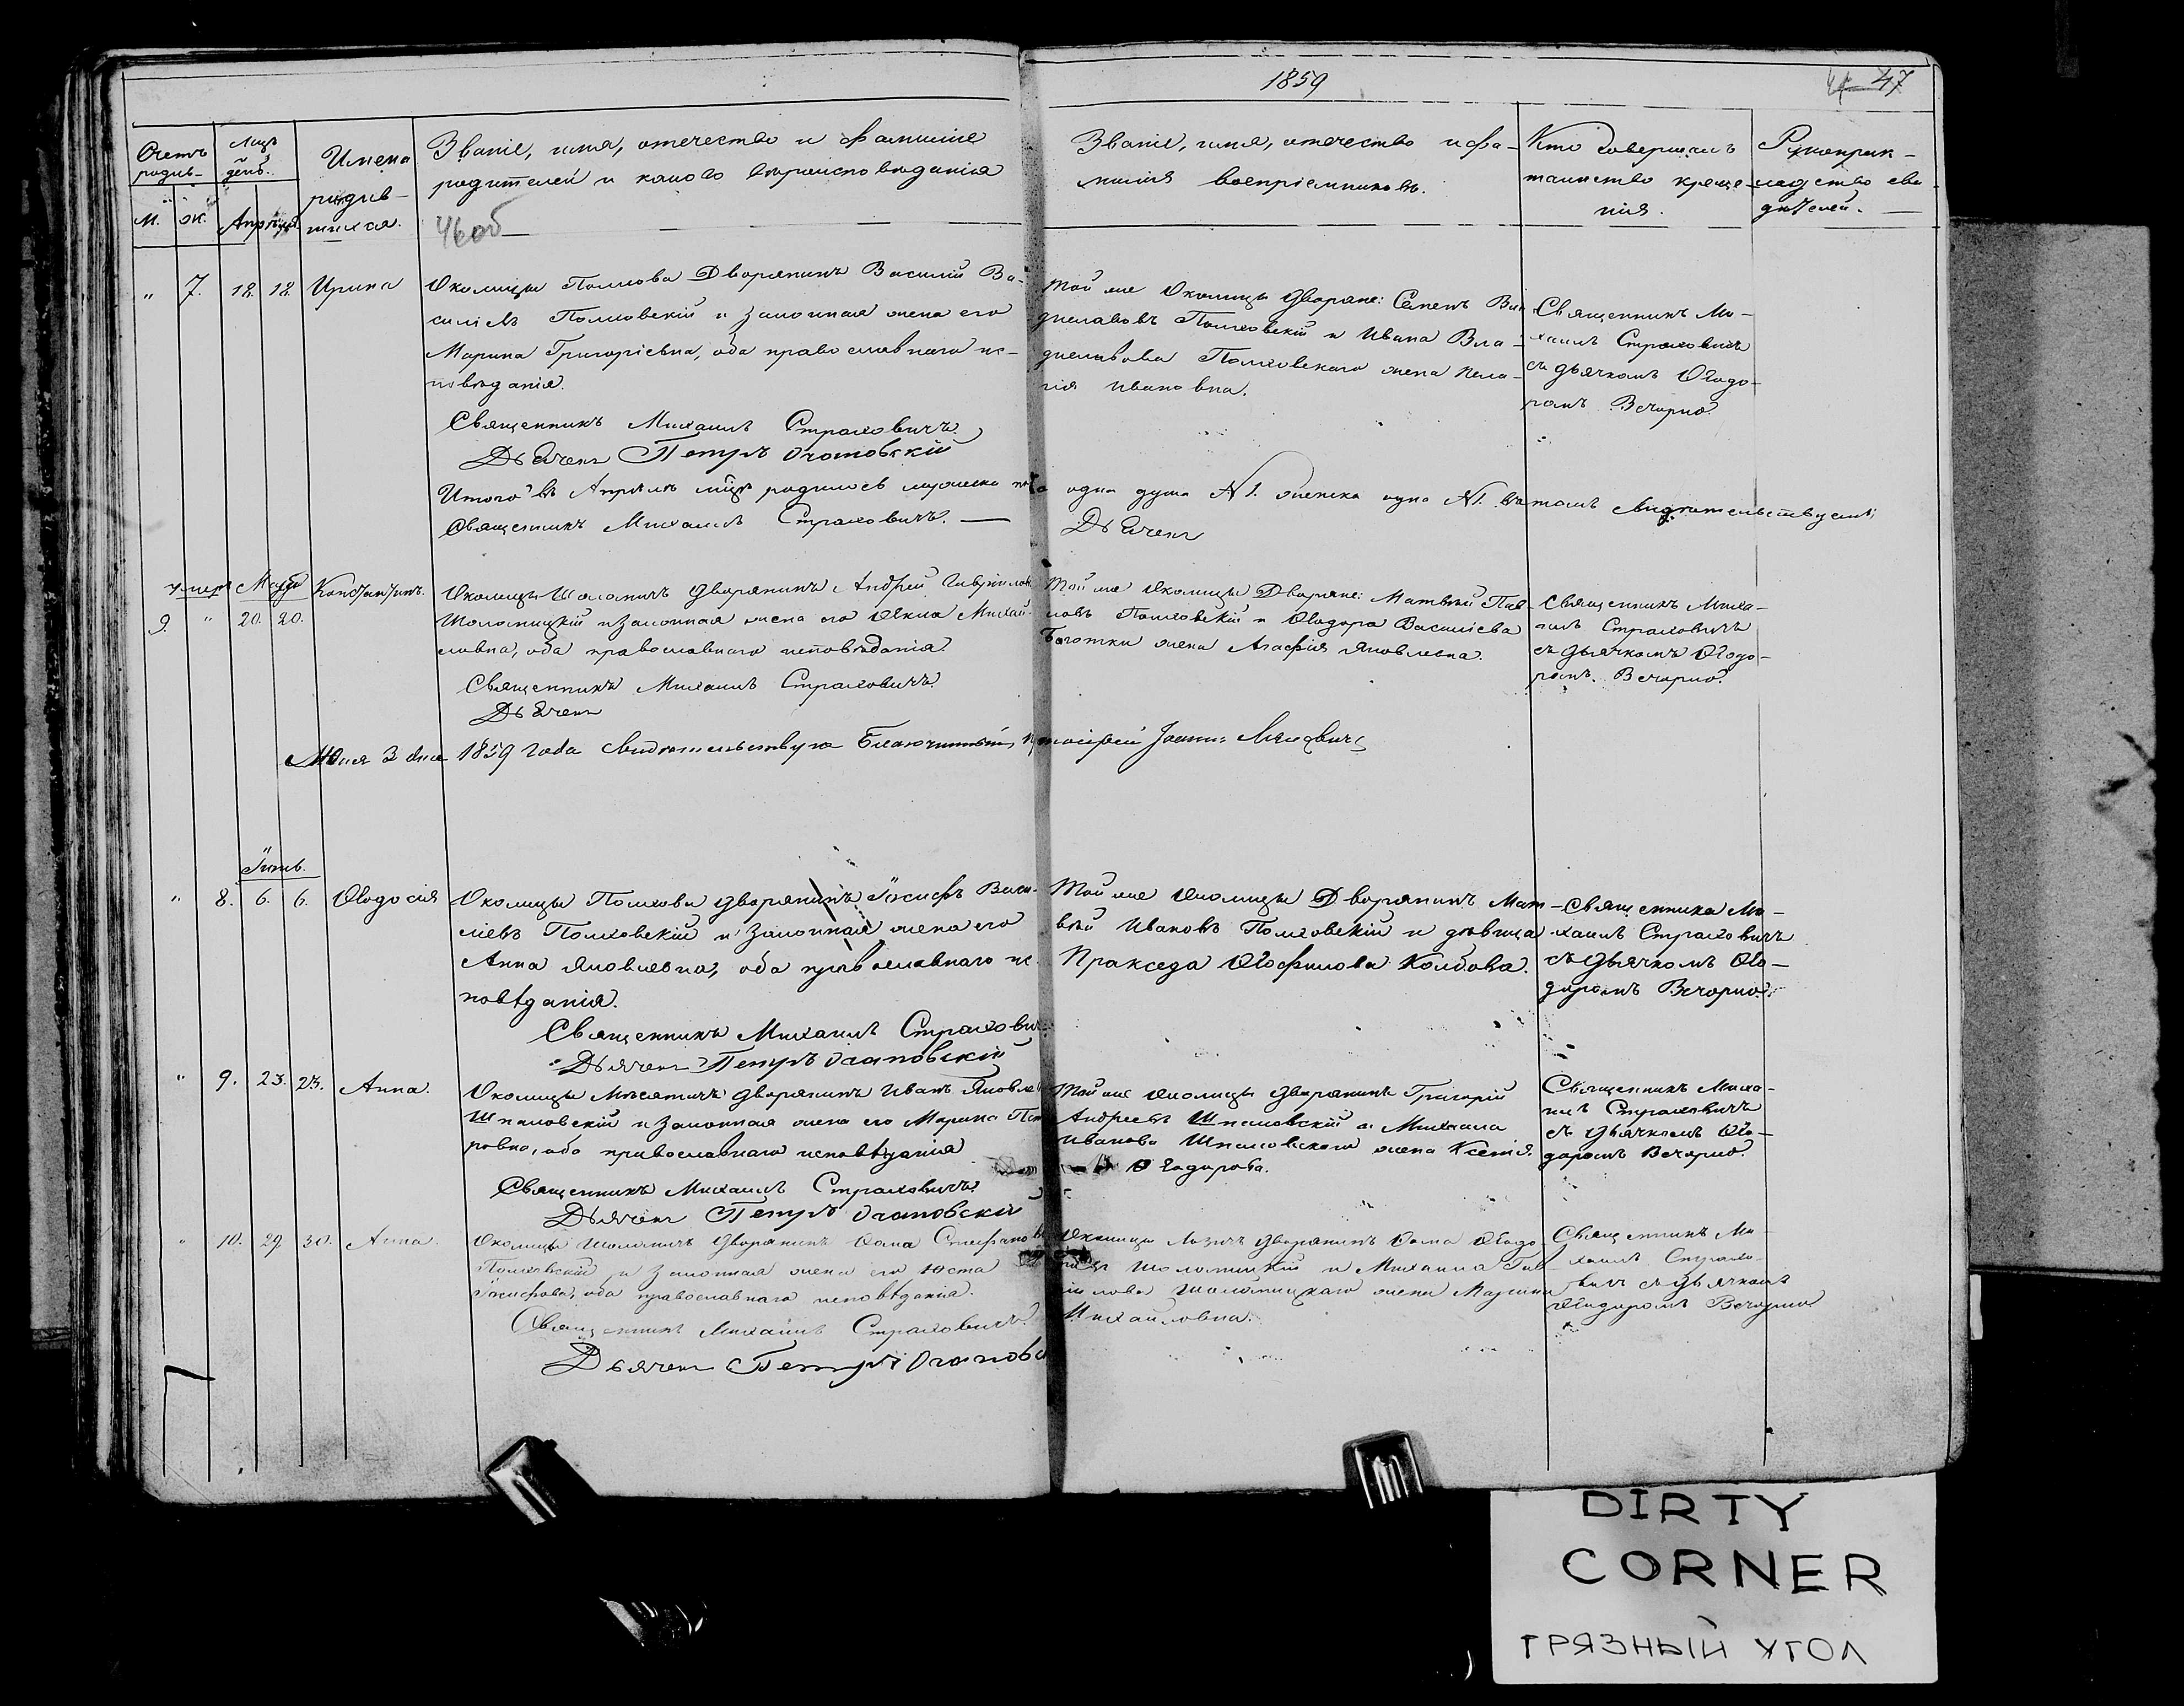 1859
47
Счетъ родив-
Мцъ и день.
Имена родив-
шихся.
Званіе, имя, отечество и фамиліе
родителей и какого вѣроисповѣданія
Званіе, имя, отечество и фа-
милія воспріемниковъ.
Кто совершалъ
таинство креще-
нія.
Рукоприк-
ладство сви-
дѣтелей.
М. Ж.
46 об
" 7. 18. 18. Ирина
Околицы Полхова Дворянинъ Василій Ва-
силіевъ Полховскій и законная жена его
Марина Григоріевна, оба православнаго ис-
повѣданія.
Священникъ Михаилъ Страховичъ.
Дьячекъ Петръ
Той же Околицы дворяне: Семенъ Вла-
диславовъ Полховскій и Ивана Вла-
диславова Полховскаго жена Пела-
гія Ивановна.
Священникъ Ми-
хаилъ Страховичъ
съ дьячкомъ Ѳеодо-
ромъ Вечорко.
Итого въ Апрѣлѣ мцѣ родилось мужеска пола одна душа №1. женска одна №1. въ томъ свидѣтельствуемъ
Священникъ Михаилъ Страховичъ.
Дьячекъ
умеръ Май Константинъ.
9. " 20. 20.
Околицы Шоломичъ дворянинъ Андрей Гавріиловъ
Шоломицкій и законная жена его Ѳекла Михай-
ловна, оба православнаго исповѣданія.
Священникъ Михаилъ Страховичъ.
Дьячекъ
Той же Околицы Дворяне: Матвѣй Пав-
ловъ Полховскій и Ѳеодора Василіева
жена Агафія Яковлевна.
Священникъ Миха-
илъ Страховичъ
съ дьячкомъ Ѳеодо-
ромъ Вечорко.
3 дня 1859 года Свидѣтельствую Благочинный, Протоіерей Іоаннъ
Іюнь.
" 8. 6. 6. Ѳеодосія
Околицы Полхова дворянинъ Іосифъ Васи-
ліевъ Полховскій и законная жена его
Анна Яковлевна, оба православнаго ис-
повѣданія.
Священникъ Михаилъ Страховичъ.
Дьячекъ Петръ
Той же Околицы Дворянинъ Мат-
вѣй Ивановъ Полховскій и дѣвица
Пракседа Ѳеофилова Колбова.
Священникъ Ми-
хаилъ Страховичъ
съ дьячкомъ Ѳео-
доромъ Вечорко.
" 9. 23. 23. Анна.
Околицы дворянинъ Иванъ Яковлевъ
Шпаковскій и законная жена его Марина Пет-
ровна, оба православнаго исповѣданія
Священникъ Михаилъ Страховичъ.
Дьячекъ Петръ
Той же Околицы дворянинъ Григорій
Андреевъ Шпаковскій и Михаила
Иванова Шпаковскаго жена Ксенія
Ѳеодорова.
Священникъ Миха-
илъ Страховичъ
съ дьячкомъ Ѳео-
доромъ Вечорко.
" 10. 29. 30. Анна.
Околицы Шоломичъ дворянинъ Ѳома Стефановъ
Полховскій и законная жена его Юста
Іосифова, оба православнаго исповѣданія.
Священникъ Михаилъ Страховичъ.
Дьячекъ Петръ
Околицы дворянинъ Ѳома
Шоломицкій и Михаила Гав-
рілова Шоломицкаго жена Марина
Михайловна.
Священникъ Ми-
хаилъ Страхо-
вичъ съ дьячкомъ
Ѳеодоромъ Вечорко.
DIRTY
CORNER
ГРЯЗНЫЙ УГОЛ